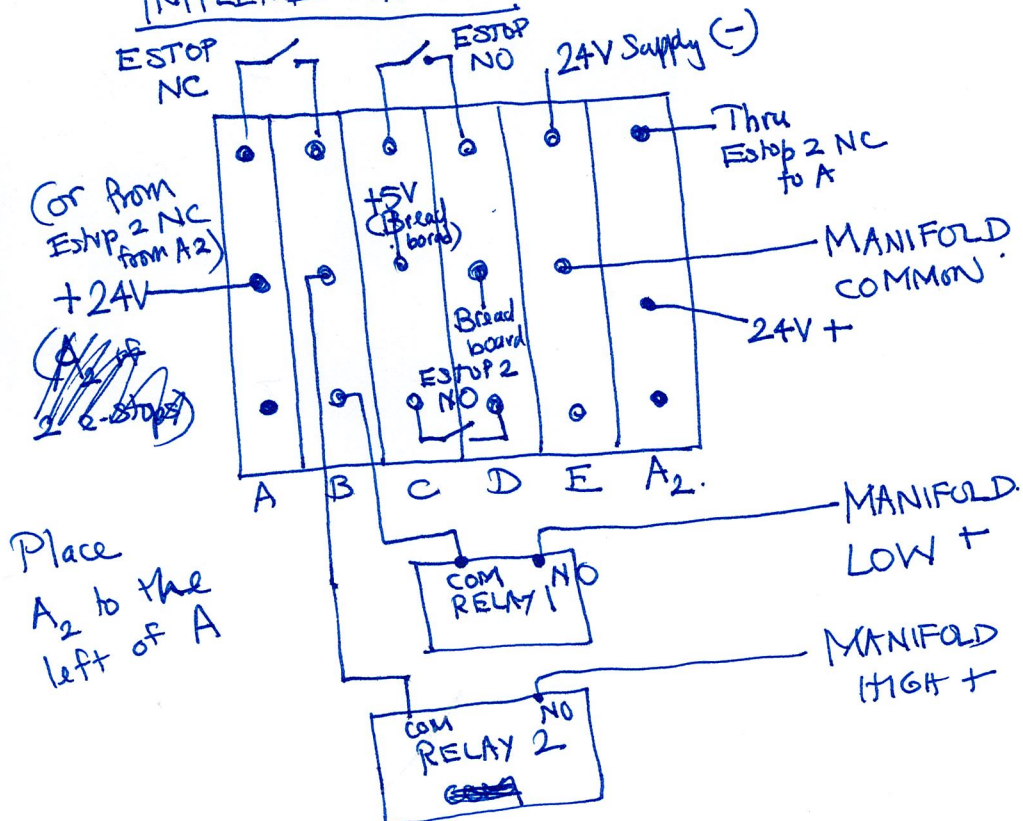 ESTOP
NC
ESTOP
NO
24V Supply (-)
Thru
Estop 2 NC
to A
(or from
Estop 2 NC
from A2)
+24V
+5V
(Bread
bored)
Bread
board
ESTOP 2
NO
MANIFOLD
COMMON.
24V +
A B C D E A2.
Place
A2 to the
left of A
COM NO
RELAY 1
MANIFOLD.
LOW +
COM NO
RELAY 2
MANIFOLD
HIGH +